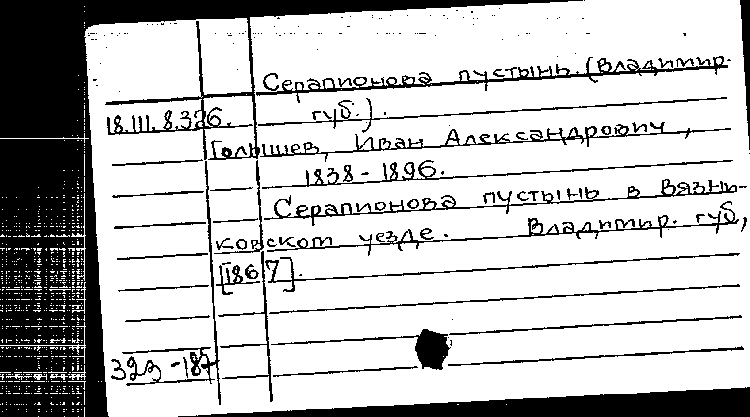 Серапионова пустынь. (Владимир.
губ.).
18.III.8.326.
Голышев, Иван Александрович,
1838-1896.
Серапионова пустынь в Вязни-
ковском уезде. Владимир. губ,
[1867].
-187